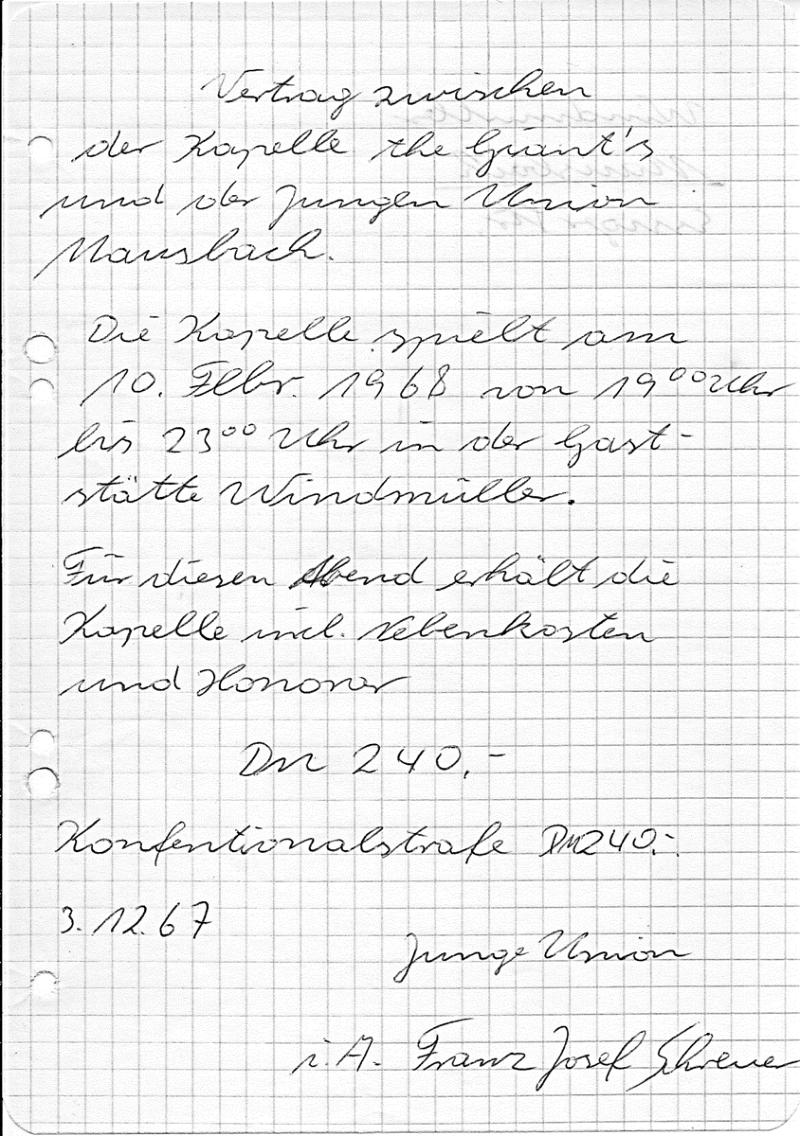 Vertrag zwischen
der Kapelle the Giant's
und der Jungen Union
Mausbach.
Die Kapelle spielt am
10. Febr. 1968 von 19⁰⁰ Uhr
bis 23⁰⁰ Uhr in der Gast-
stätte Windmüller.
Für diesen Abend erhält die
Kapelle incl. Nebenkosten
und Honorar
DM 240.-
Konfentionalstrafe DM 240.-
3.12.67
Junge Union
i.A. Franz Josef Schreuer